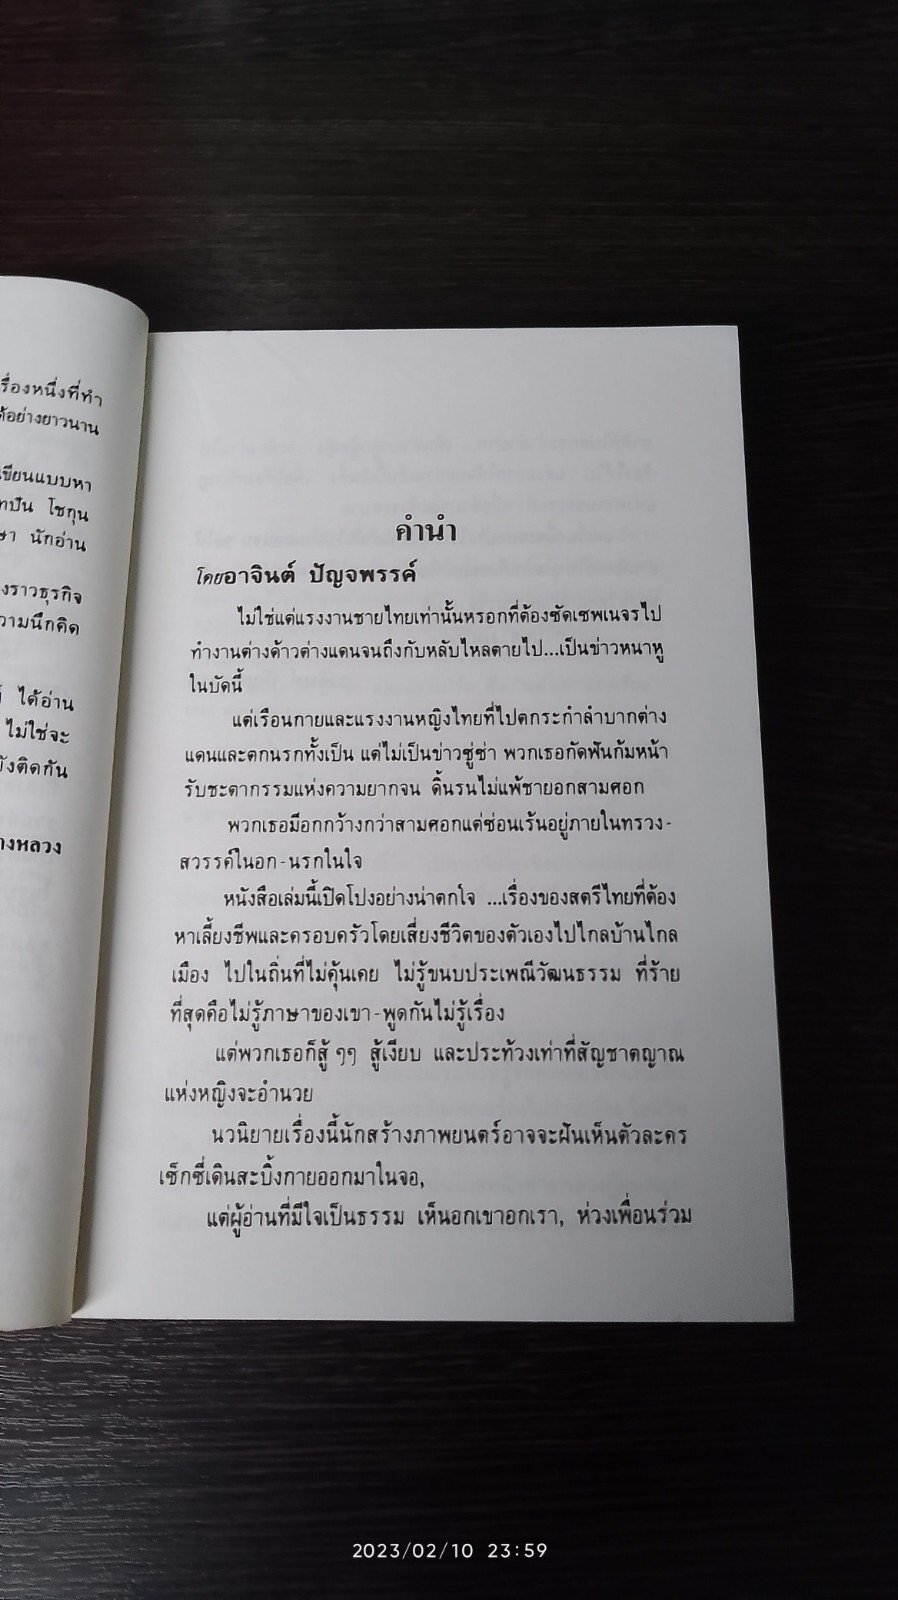 รื่องหนึ่งที่ทำ
ด้อย่างยาวนาน
เขียนแบบหา
ทปัน โชกุน
ษา นักอ่าน
งราวธุรกิจ
วามนึกคิด
ได้อ่าน
ไม่ใช่จะ
ังติดกัน
างหลวง
คำนำ
โดยอาจินต์ ปัญจพรรค์
ไม่ใช่แต่แรงงานชายไทยเท่านั้นหรอกที่ต้องซัดเซพเนจรไป
ทำงานต่างด้าวต่างแดนจนถึงกับหลับไหลตายไป...เป็นข่าวหนาหู
ในบัดนี้
แต่เรือนกายและแรงงานหญิงไทยที่ไปตกระกำลำบากต่าง
แดนและตกนรกทั้งเป็น แต่ไม่เป็นข่าวซู่ซ่า พวกเธอกัดฟันก้มหน้า
รับชะตากรรมแห่งความยากจน ดิ้นรนไม่แพ้ชายอกสามศอก
พวกเธอมีอกกว้างกว่าสามศอกแต่ซ่อนเร้นอยู่ภายในทรวง-
สวรรค์ในอก-นรกในใจ
หนังสือเล่มนี้เปิดโปงอย่างน่าตกใจ ...เรื่องของสตรีไทยที่ต้อง
หาเลี้ยงชีพและครอบครัวโดยเสี่ยงชีวิตของตัวเองไปไกลบ้านไกล
เมือง ไปในถิ่นที่ไม่คุ้นเคย ไม่รู้ขนบประเพณีวัฒนธรรม ที่ร้าย
ที่สุดคือไม่รู้ภาษาของเขา-พูดกันไม่รู้เรื่อง
แต่พวกเธอก็สู้ ๆๆ สู้เงียบ และประท้วงเท่าที่สัญชาตญาณ
แห่งหญิงจะอำนวย
นวนิยายเรื่องนี้นักสร้างภาพยนตร์อาจจะฝันเห็นตัวละคร
เซ็กซี่เดินสะบิ้งกายออกมาในจอ,
แต่ผู้อ่านที่มีใจเป็นธรรม เห็นอกเขาอกเรา, ห่วงเพื่อนร่วม
2023/02/10 23:59